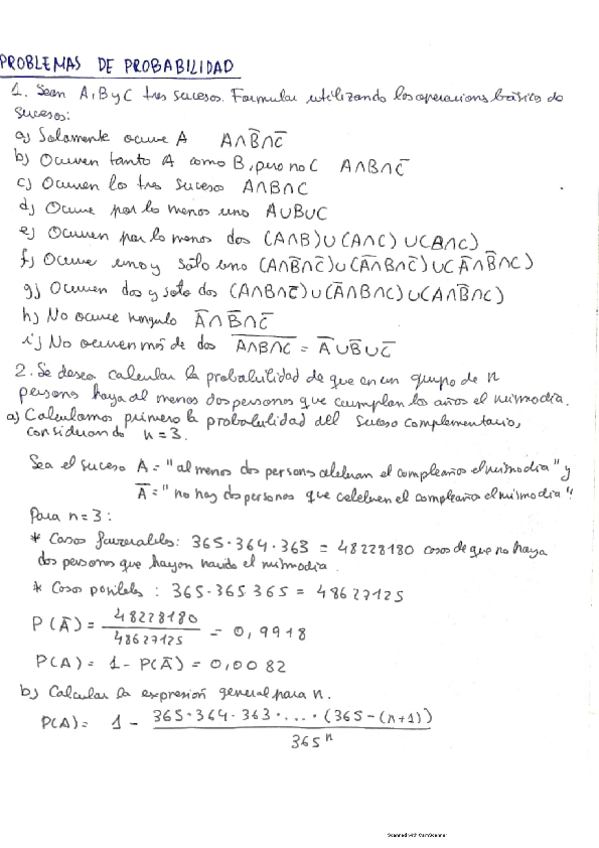 PROBLEMAS DE PROBABILIDAD
1. Sean A, B y C tres sucesos. Formular utilizando las operaciones básicas de
sucesos:
a) Solamente ocurre A A∩B̅∩C̅
b) Ocurren tanto A como B, pero no C A∩B∩C̅
c) Ocurren los tres suceso A∩B∩C
d) Ocurre por lo menos uno A∪B∪C
e) Ocurren por lo menos dos (A∩B)∪(A∩C)∪(B∩C)
f) Ocurre uno y sólo uno (A∩B̅∩C̅)∪(A̅∩B∩C̅)∪(A̅∩B̅∩C)
g) Ocurren dos y solo dos (A∩B∩C̅)∪(A̅∩B∩C)∪(A∩B̅∩C)
h) No ocurre ninguno A̅∩B̅∩C̅
i) No ocurren más de dos \overline{A∩B∩C} = A̅∪B̅∪C̅
2. Se desea calcular la probabilidad de que en un grupo de n
persons haya al menos dos personas que cumplan los años el mismo día.
a) Calculamos primero la probabilidad del suceso complementario,
considerando n=3.
Sea el suceso A = "al menos dos persons celebran el cumpleaños el mismo día" y
A̅ = "no hay dos personas que celebren el cumpleaños el mismo día".
Para n=3:
* Casos favorables: 365·364·363 = 48228180 casos de que no haya
dos personas que hayan nacido el mismo día.
* Casos posibles: 365·365 365 = 48627125
P(A̅) = 48228180 / 48627125 = 0,9918
P(A) = 1 - P(A̅) = 0,0082
b) Calcular la expresión general para n.
P(A) = 1 - 365·364·363·...·(365-(n+1)) / 365ⁿ
Scanned with CamScanner